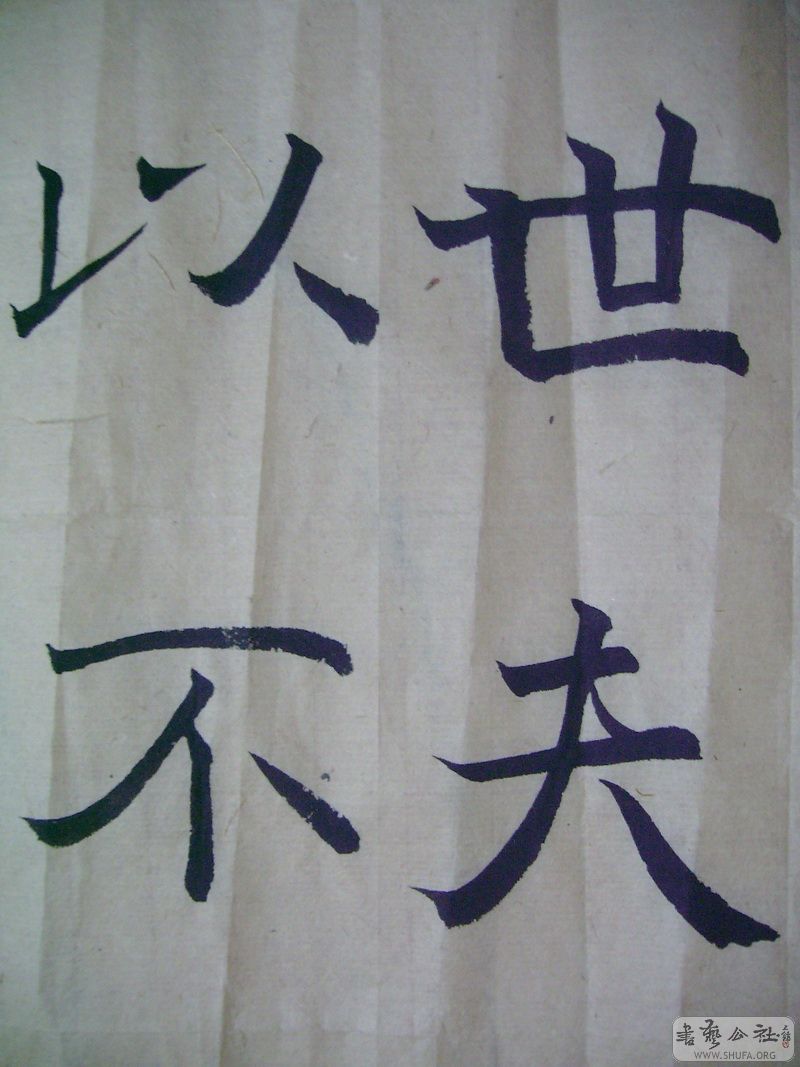 世夫
以不
書藝公社
WWW.SHUFA.ORG